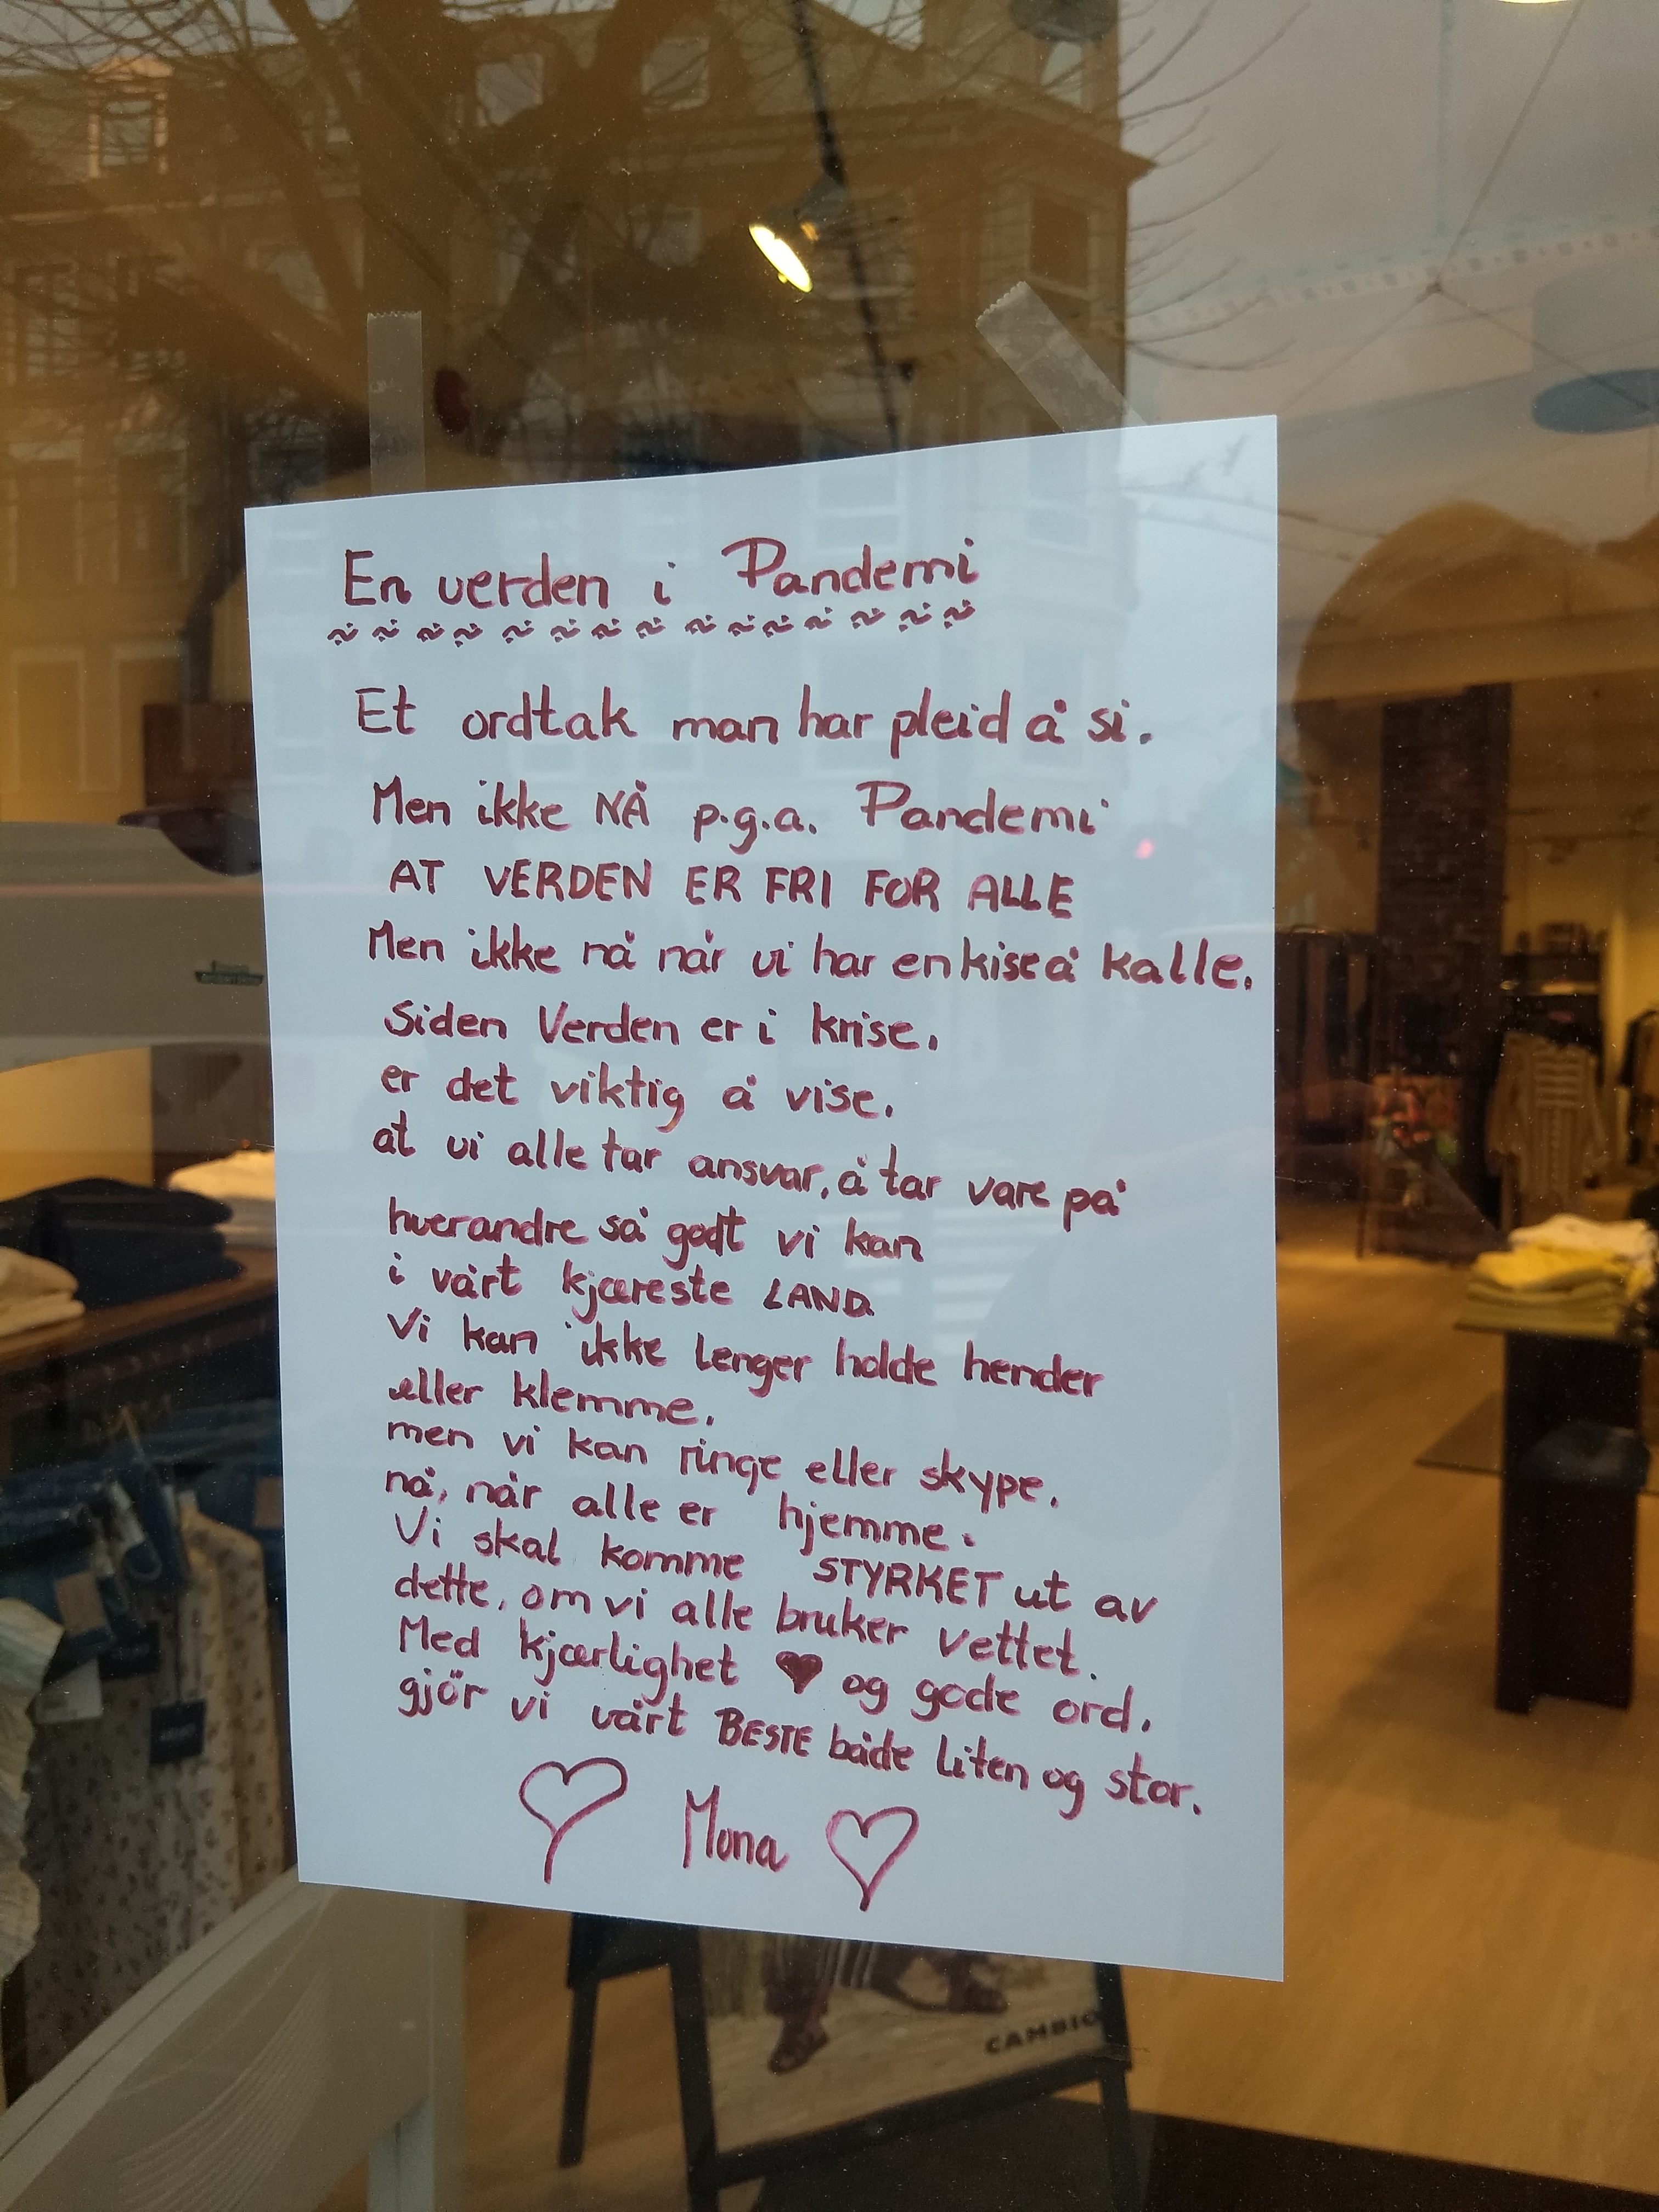 En verden i Pandemi
Et ordtak man har pleid å si.
Men ikke NÅ p.g.a. Pandemi
AT VERDEN ER FRI FOR ALLE
Men ikke nå når vi har en kise å kalle.
Siden Verden er i krise.
er det viktig å vise.
at vi alle tar ansvar, å tar vare på
hverandre så godt vi kan
i vårt kjæreste LAND.
Vi kan ikke lenger holde hender
eller klemme.
men vi kan ringe eller skype.
nå, når alle er hjemme.
Vi skal komme STYRKET ut av
dette, om vi alle bruker vettet.
Med kjærlighet ♥ og gode ord.
gjör vi vårt BESTE både liten og stor.
♡ Mona ♡
CAMBIO